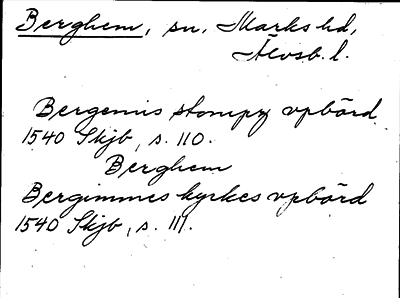 Berghem, sn, Marks hd,
Älvsb. l.
Bergemis stompn vpbörd
1540 Skjb, s. 110.
Berghem
Bergimmes kyrkes vpbörd
1540 Skjb, s. 111.